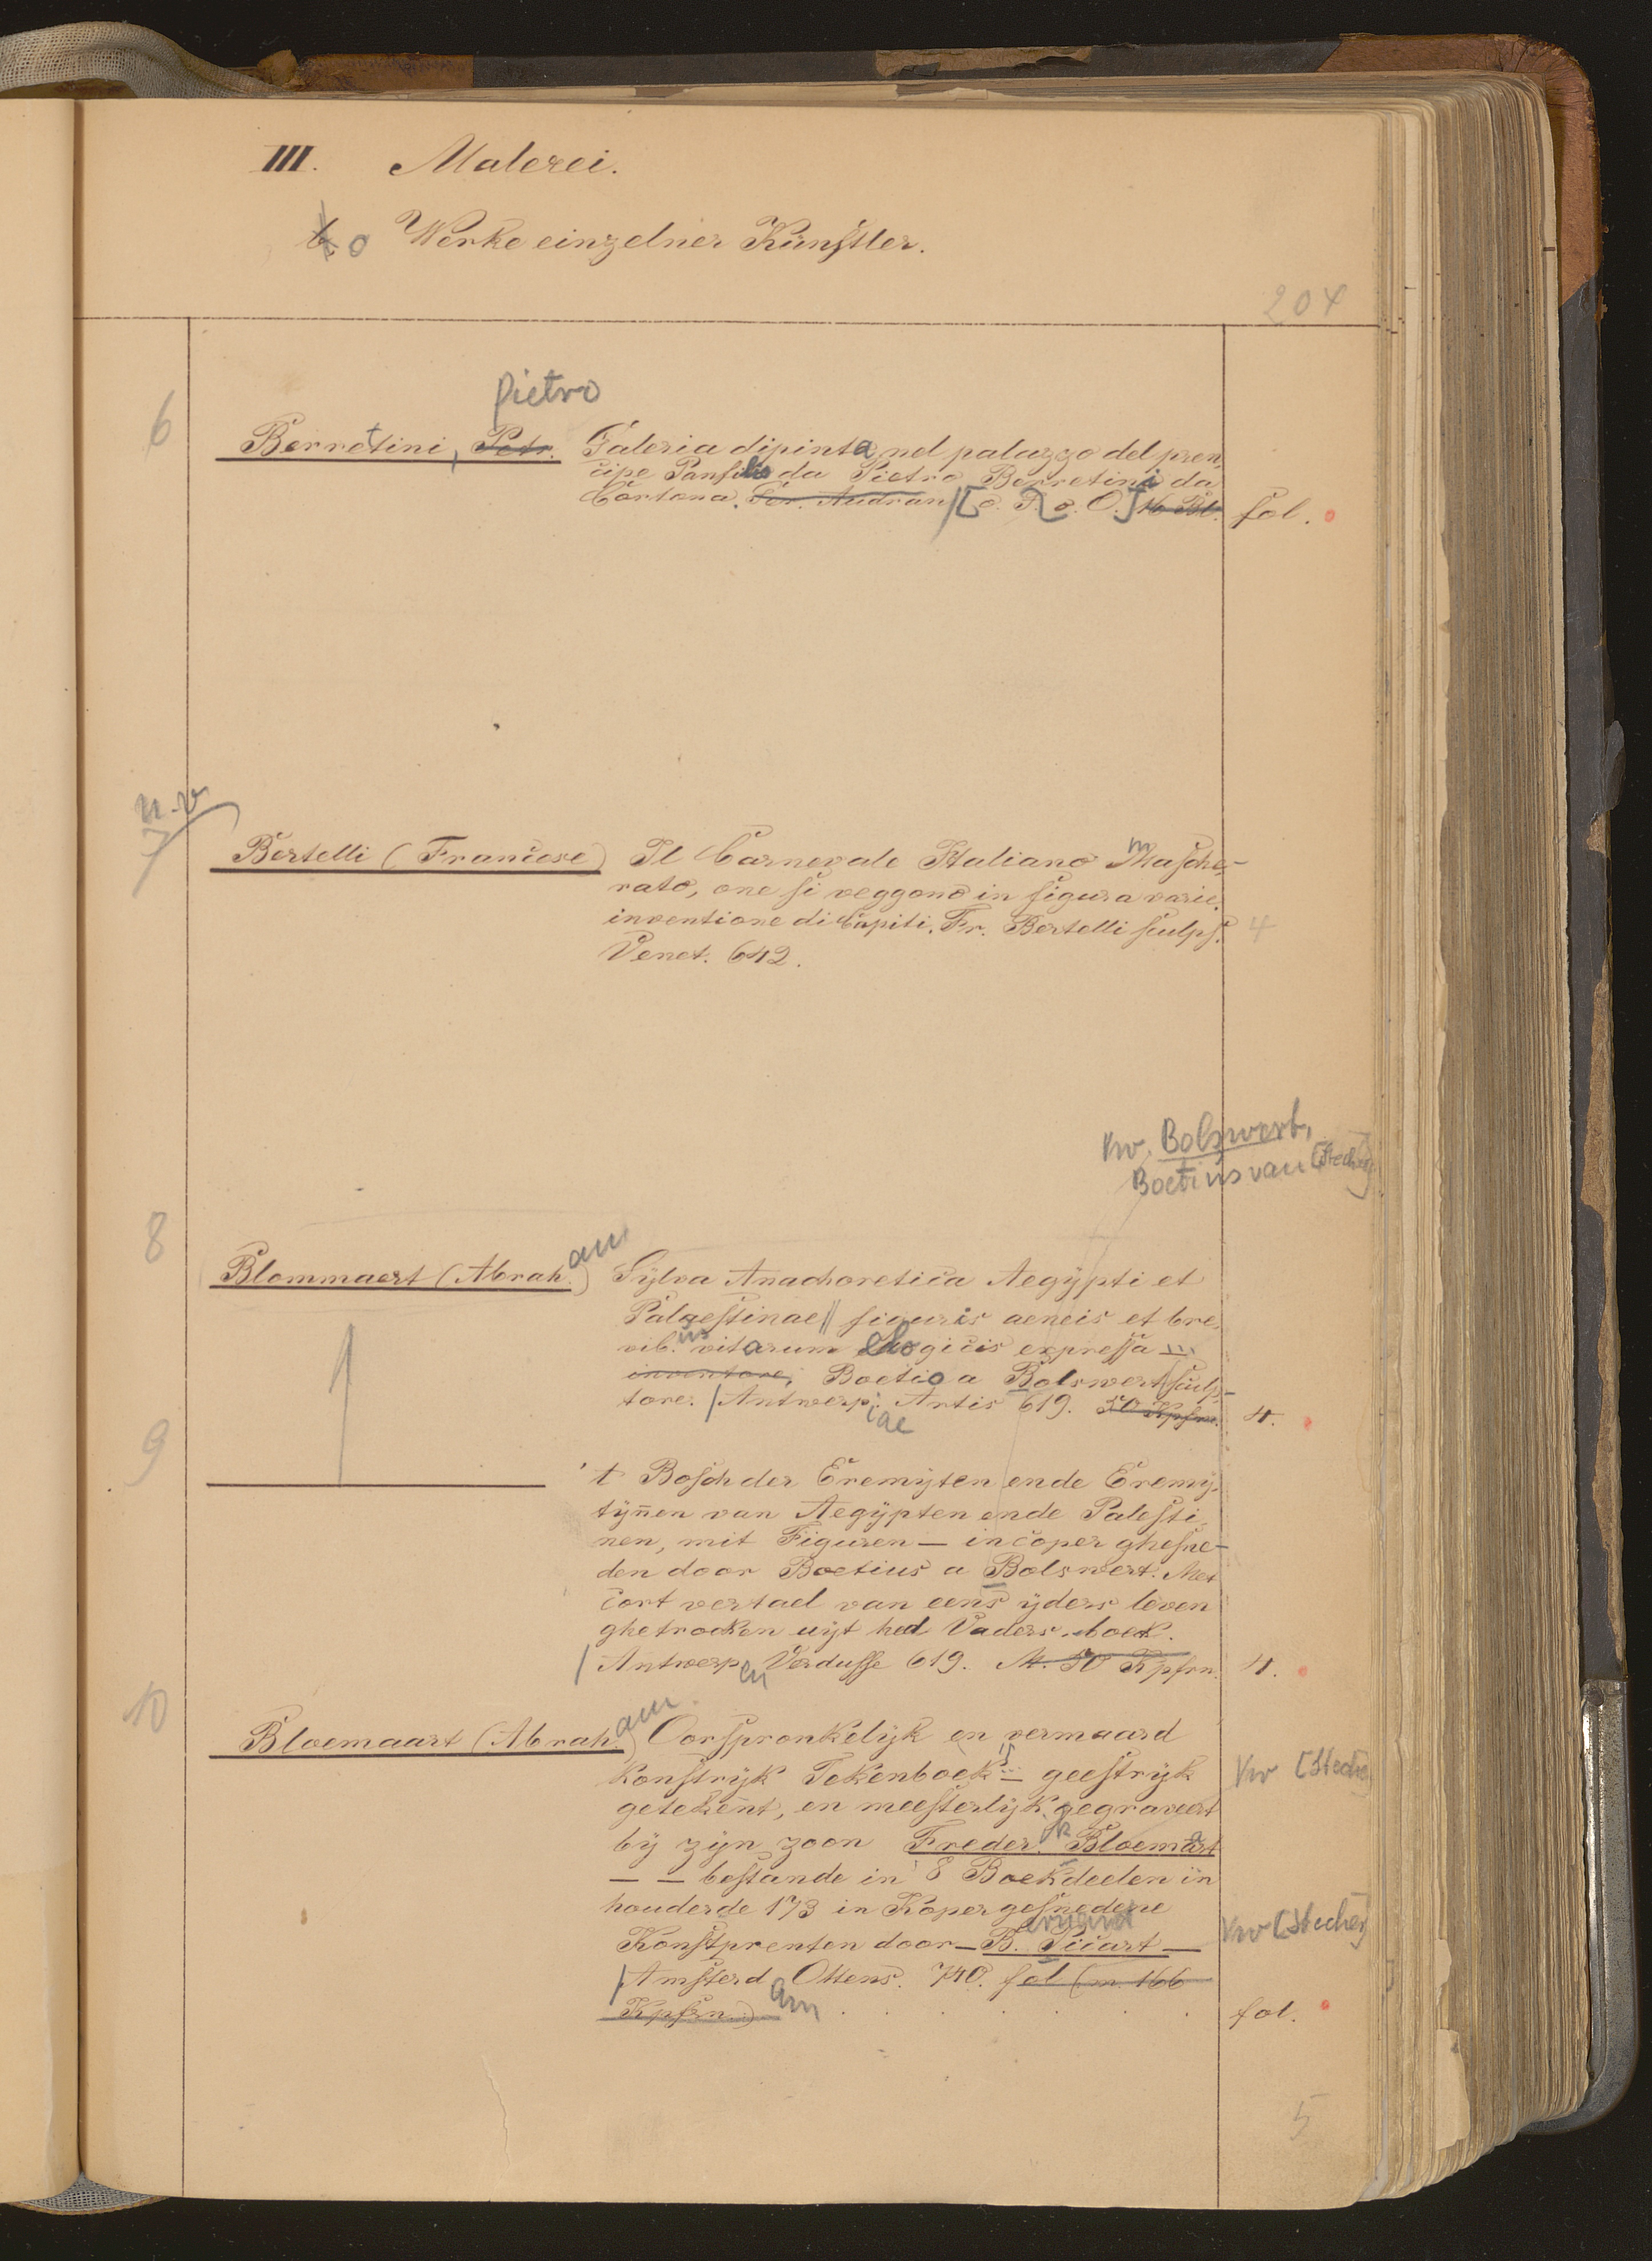 III. Malerei.
o Werke einzelner Künstler.
204
Pietro
6
Berrettini, Petr. Galeria dipinta nel palazzo del pren-
cipe Panfilio da Pietro Berretini da
Cortona. Car. Audran [o. O. o. J.] 16 Bl. fol.
n.v.
7
Bertelli (Francesc) Il Carnevale Italiano Masche-
rato, one si veggono in figura varie
inventione di Capiti. Fr. Bertelli sculps. 4
Venet. 642.
Vw. Bolswert,
Boetius van [Stecher]
8
Blommaert (Abraham) Sylva Anachoretica Aegÿpti et
Palaestinae || figuris aeneis et bre-
vib.us vitarum elogiis expressa ...
inventore, Boetio a Bolswert sculp-
tore. | Antwerpiae Artis 619. 50 Kpfrn. 4.
9
't Bosch der Eremijten ende Eremij-
tÿnen van Aegÿpten ende Palesti-
nen, mit Figuren — in coper ghesne-
den door Boetius a Bolswert. Met
cort vertael van eens ijders leven
ghetrocken uijt het Vaders-boek.
| Antwerpen Verdusse 619. M. 50 Kpfrn. 4.
10
Bloemaart (Abraham) Oorspronkelijk en vermaard
Konstrijk Tekenboek — geestrijk Vw [Stecher]
getekent, en meesterlijk gegraveert
bÿ zijn zoon Frederik Bloemart
— — bestande in 8 Boekdeelen in
houderde 173 in Koper gesnedene
Konstprenten door — B. Picart — Vw [Stecher]
| Amsterdam Ottens. 740. fol (m. 166
Kpfrn.) fol.
5